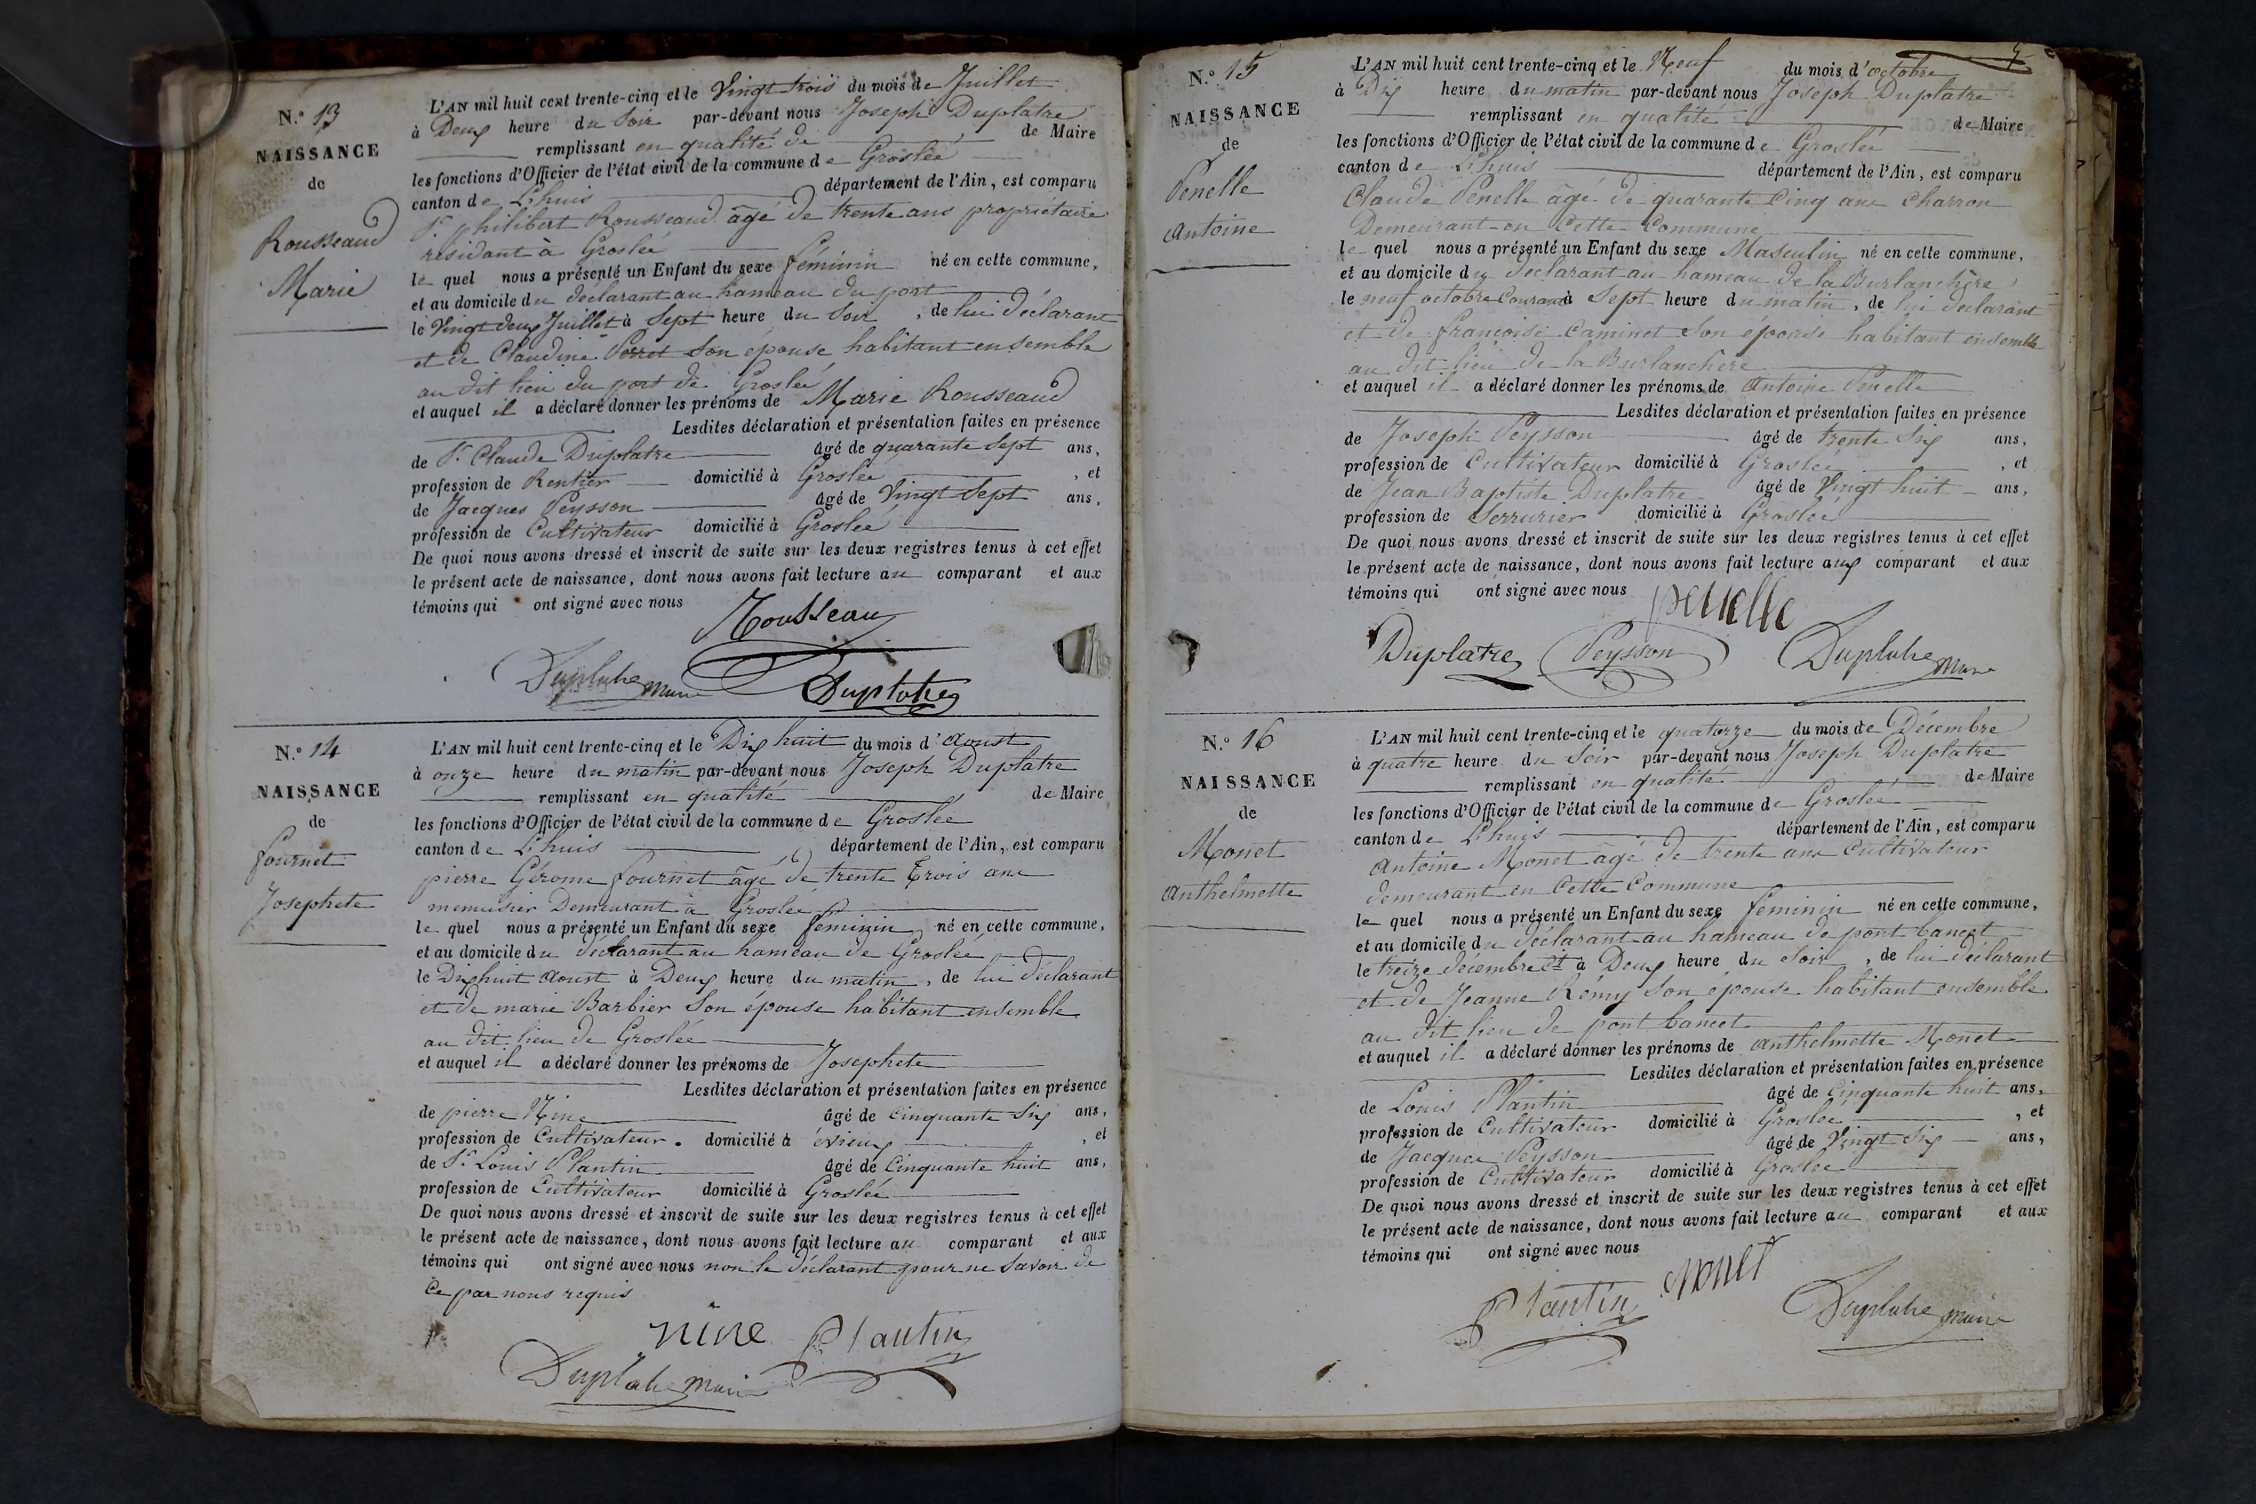 N.º 13
NAISSANCE
de
Rousseaud
Marie
L'AN mil huit cent trente-cinq et le Vingt trois du mois de Juillet
à Deux heure du Soir par-devant nous Joseph Duplatre
remplissant en qualité de de Maire
les fonctions d'Officier de l'état civil de la commune de Groslée
canton de Lhuis département de l'Ain, est comparu
Sr. philibert Rousseaud âgé de trente ans propriétaire
résidant à Groslée
le quel nous a présenté un Enfant du sexe féminin né en cette commune,
et au domicile du déclarant au hameau du port
le Vingt deux Juillet à Sept heure du Soir, de lui déclarant
et de Claudine Porret Son épouse habitant ensemble
au dit lieu du port de Groslée
et auquel il a déclaré donner les prénoms de Marie Rousseaud
Lesdites déclaration et présentation faites en présence
de Sr. Claude Duplatre âgé de quarante Sept ans,
profession de Rentier domicilié à Groslée, et
de Jacques Peysson âgé de Vingt Sept ans,
profession de Cultivateur domicilié à Groslée
De quoi nous avons dressé et inscrit de suite sur les deux registres tenus à cet effet
le présent acte de naissance, dont nous avons fait lecture au comparant et aux
témoins qui ont signé avec nous
Rousseau
Duplatre maire Duplatre
N.º 14
NAISSANCE
de
fournet
Josephete
L'AN mil huit cent trente-cinq et le Dix huit du mois d'Aoust
à onze heure du matin par-devant nous Joseph Duplatre
remplissant en qualité de Maire
les fonctions d'Officier de l'état civil de la commune de Groslée
canton de Lhuis département de l'Ain, est comparu
pierre Gérome fournet âgé de trente trois ans
menusier Demeurant à Groslée
le quel nous a présenté un Enfant du sexe féminin né en cette commune,
et au domicile du déclarant au hameau de Groslée
le Dixhuit Aoust à Deux heure du matin, de lui déclarant
et de marie Barbier Son épouse habitant ensemble
au dit lieu de Groslée
et auquel il a déclaré donner les prénoms de Josephete
Lesdites déclaration et présentation faites en présence
de pierre Nine âgé de Cinquante Six ans,
profession de Cultivateur. domicilié à évieux, et
de Sr. Louis Plantin âgé de Cinquante huit ans,
profession de Cultivateur domicilié à Groslée
De quoi nous avons dressé et inscrit de suite sur les deux registres tenus à cet effet
le présent acte de naissance, dont nous avons fait lecture au comparant et aux
témoins qui ont signé avec nous non le déclarant pour ne Savoir de
Ce par nous requis
nine Plantin
Duplatre maire
N.º 15
NAISSANCE
de
Penelle
Antoine
L'AN mil huit cent trente-cinq et le Neuf du mois d'octobre
à Dix heure du matin par-devant nous Joseph Duplatre
remplissant en qualité de Maire
les fonctions d'Officier de l'état civil de la commune de Groslée
canton de Lhuis département de l'Ain, est comparu
Claude Penelle âgé de quarante Cinq ans Charron
Demeurant en Cette Commune
le quel nous a présenté un Enfant du sexe Masculin né en cette commune,
et au domicile du déclarant au hameau de la Burlanchère
le neuf octobre Courant à Sept heure du matin, de lui déclarant
et de françoise Caminet Son épouse habitant ensemble
au dit lieu de la Burlanchère
et auquel il a déclaré donner les prénoms de Antoine Penelle
Lesdites déclaration et présentation faites en présence
de Joseph Peysson âgé de trente Six ans,
profession de Cultivateur domicilié à Groslée, et
de Jean Baptiste Duplatre âgé de Vingt huit ans,
profession de Serrurier domicilié à Groslée
De quoi nous avons dressé et inscrit de suite sur les deux registres tenus à cet effet
le présent acte de naissance, dont nous avons fait lecture aux comparant et aux
témoins qui ont signé avec nous
penelle
Duplatre Peysson Duplatre maire
N.º 16
NAISSANCE
de
Monet
Anthelmette
L'AN mil huit cent trente-cinq et le quatorze du mois de Décembre
à quatre heure du Soir par-devant nous Joseph Duplatre
remplissant en qualité de Maire
les fonctions d'Officier de l'état civil de la commune de Groslée
canton de Lhuis département de l'Ain, est comparu
Antoine Monet âgé de trente ans Cultivateur
demeurant en Cette Commune
le quel nous a présenté un Enfant du sexe féminin né en cette commune,
et au domicile du déclarant au hameau de pont bancet
le treize décembre ct à Deux heure du Soir, de lui déclarant
et de Jeanne Rémy Son épouse habitant ensemble
au dit lieu de pont bancet
et auquel il a déclaré donner les prénoms de Anthelmette Monet
Lesdites déclaration et présentation faites en présence
de Louis Plantin âgé de Cinquante huit ans,
profession de Cultivateur domicilié à Groslée, et
de Jacques Peysson âgé de Vingt Six ans,
profession de Cultivateur domicilié à Groslée
De quoi nous avons dressé et inscrit de suite sur les deux registres tenus à cet effet
le présent acte de naissance, dont nous avons fait lecture au comparant et aux
témoins qui ont signé avec nous
Plantin monet
Duplatre maire